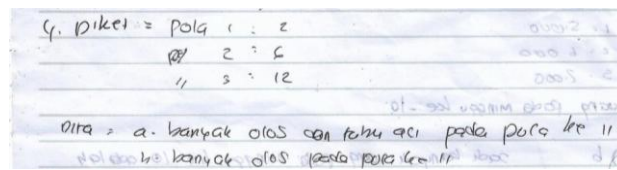 4. Diket = Pola 1 : 2
2 : 6
" 3 : 12
Dita = a. banyak olos dan tahu aci pada pola ke 11
b banyak olos pada pola ke 11